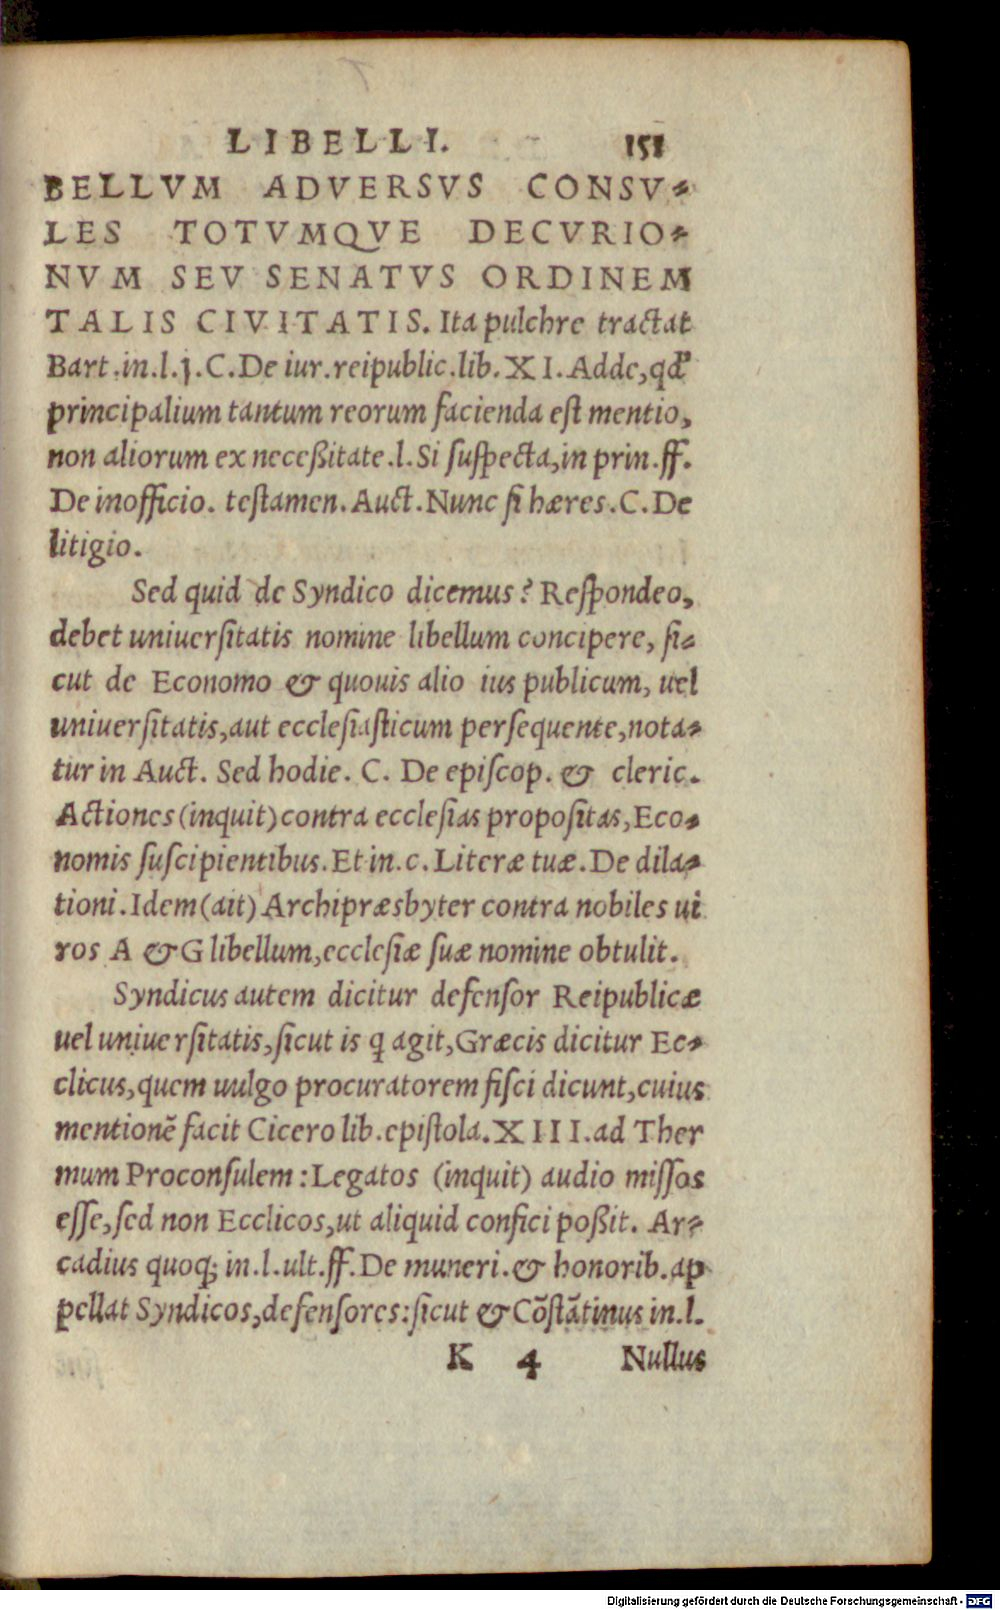 LIBELLI. 151
BELLVM ADVERSVS CONSV-
LES TOTVMQVE DECVRIO-
NVM SEV SENATVS ORDINEM
TALIS CIVITATIS. Ita pulchre tractat
Bart.in.l.j.C.De iur.reipublic.lib.XI.Adde,qđ
principalium tantum reorum facienda est mentio,
non aliorum ex neceßitate.l.Si suspecta,in prin.ff.
De inofficio. testamen.Auct.Nunc si hæres.C.De
litigio.
Sed quid de Syndico dicemus? Respondeo,
debet uniuersitatis nomine libellum concipere, si-
cut de Economo & quouis alio ius publicum, uel
uniuersitatis,aut ecclesiasticum persequente,nota-
tur in Auct. Sed hodie. C. De episcop. & cleric.
Actiones (inquit) contra ecclesias propositas,Eco-
nomis suscipientibus.Et in.c.Literæ tuæ.De dila-
tioni.Idem (ait) Archipræsbyter contra nobiles ui
ros A & G libellum,ecclesiæ suæ nomine obtulit.
Syndicus autem dicitur defensor Reipublicæ
uel uniuersitatis,sicut is q agit,Græcis dicitur Ec-
clicus,quem uulgo procuratorem fisci dicunt,cuius
mentionẽ facit Cicero lib.epistola.XIII.ad Ther
mum Proconsulem:Legatos (inquit) audio missos
esse,sed non Ecclicos,ut aliquid confici poßit. Ar-
cadius quoq; in.l.ult.ff.De muneri.& honorib.ap
pellat Syndicos,defensores:sicut & Cõstãtinus in.l.
K 4 Nullus
Digitalisierung gefördert durch die Deutsche Forschungsgemeinschaft - DFG